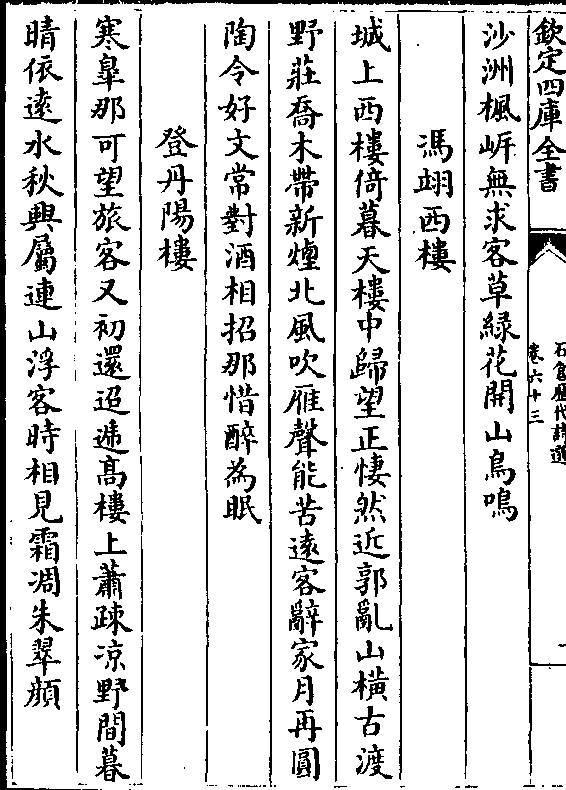 欽定四庫全書
石倉歷代詩選
卷六十三
沙洲楓岸無求客草綠花開山鳥鳴
馮翊西樓
城上西樓倚暮天樓中歸望正悽然近郭亂山橫古渡
野莊喬木帶新煙北風吹雁聲能苦遠客辭家月再圓
陶令好文常對酒相招那惜醉為眠
登丹陽樓
寒皐那可望旅客又初還迢遞高樓上蕭疎凉野間暮
晴依遠水秋興屬連山浮客時相見霜凋朱翠顔